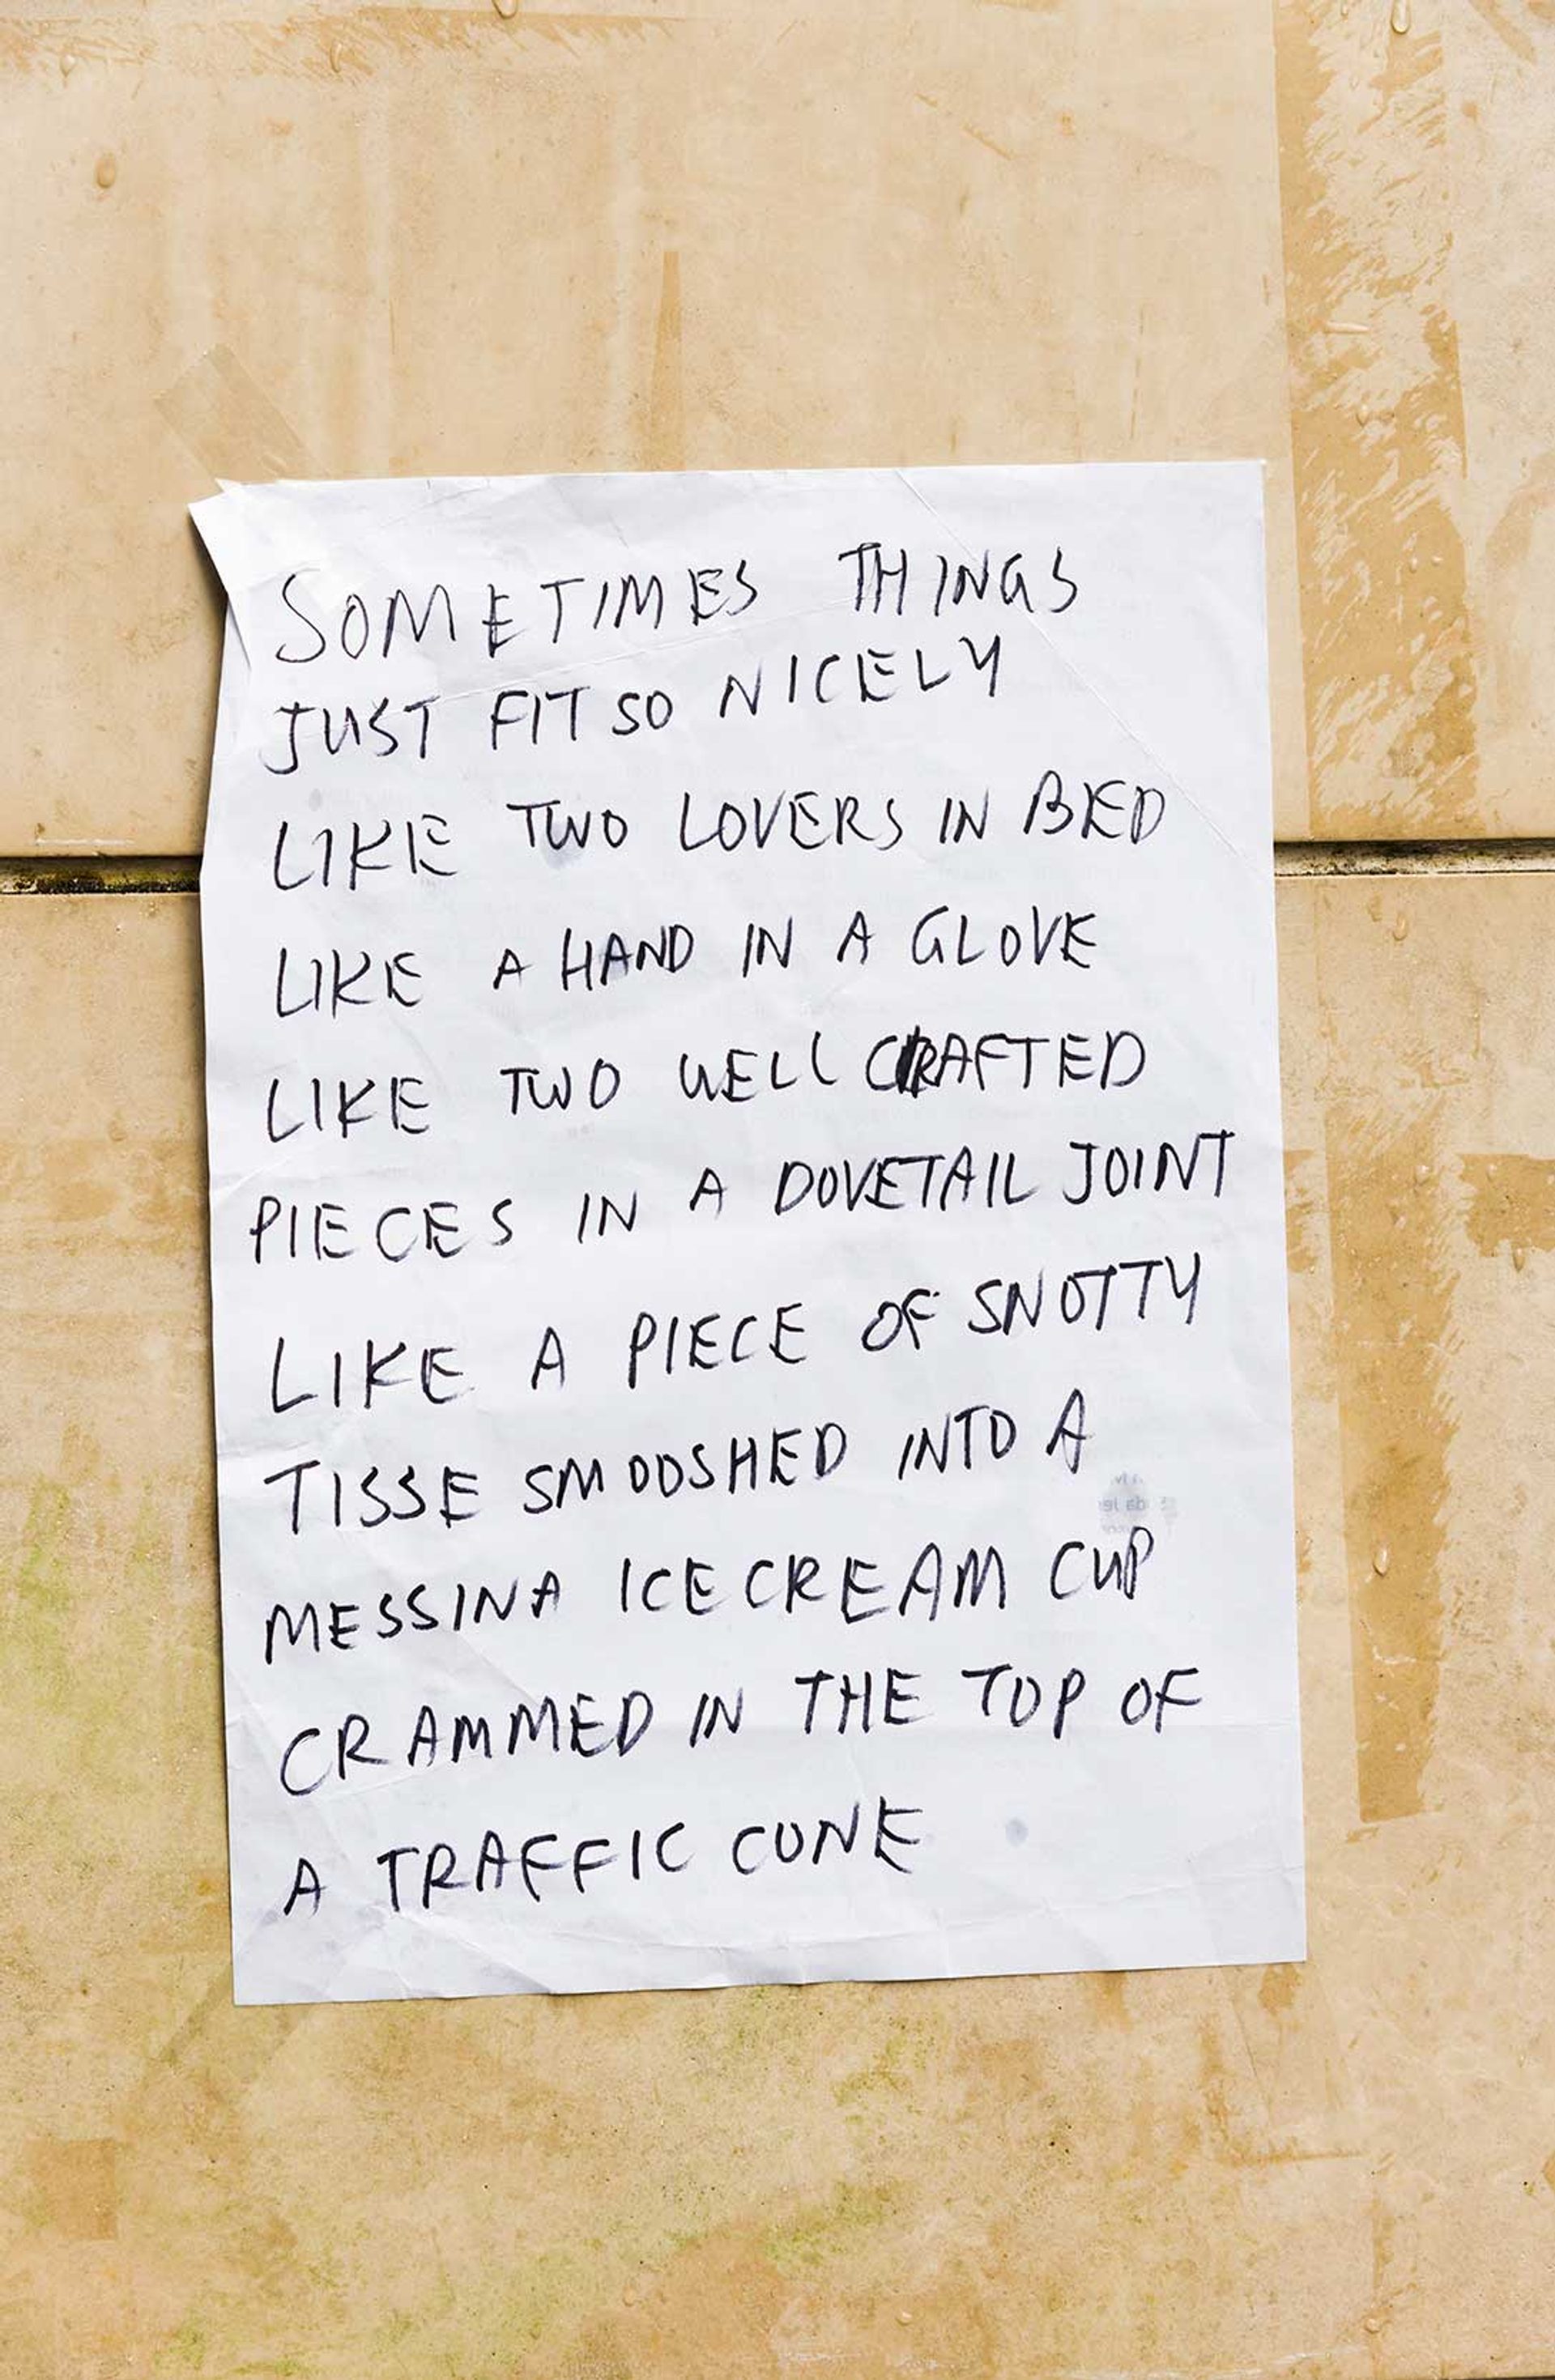 SOMETIMES THINGS
JUST FIT SO NICELY
LIKE TWO LOVERS IN BED
LIKE A HAND IN A GLOVE
LIKE TWO WELL CRAFTED
PIECES IN A DOVETAIL JOINT
LIKE A PIECE OF SNOTTY
TISSE SMOOSHED INTO A
MESSINA ICECREAM CUP
CRAMMED IN THE TOP OF
A TRAFFIC CONE